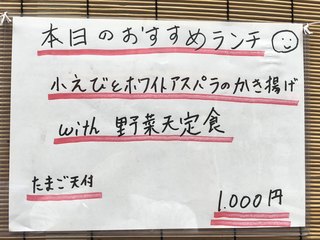 本日のおすすめランチ
小えびとホワイトアスパラのかき揚げ
with 野菜天定食
たまご天付
1.000円